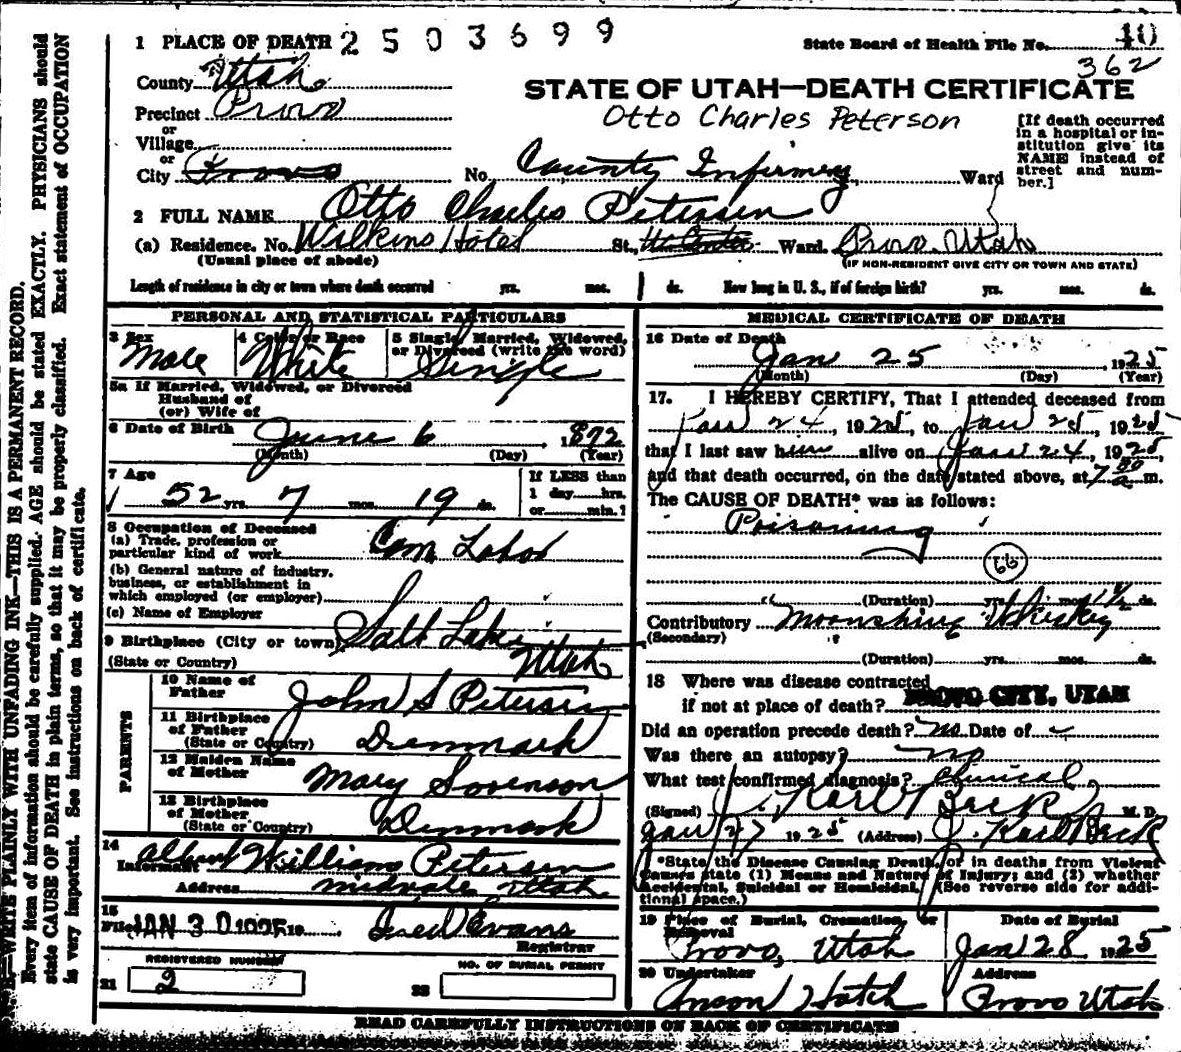 1 PLACE OF DEATH 2503699
State Board of Health File No. 10
362
County Utah
STATE OF UTAH—DEATH CERTIFICATE
Precinct Provo
Otto Charles Peterson
or
Village
or
City Provo No. County Infirmry Ward
[If death occurred
in a hospital or in-
stitution give its
NAME instead of
street and num-
ber.]
2 FULL NAME Otto Charles Petersen
(a) Residence. No. Wilkins Hotel St., Ward. Provo. Utah
(Usual place of abode)
(IF NON-RESIDENT GIVE CITY OR TOWN AND STATE)
Length of residence in city or town where death occurred yrs. mos. ds. How long in U. S., if of foreign birth? yrs. mos. ds.
PERSONAL AND STATISTICAL PARTICULARS
3 Sex
Male
4 Color or Race
White
5 Single, Married, Widowed,
or Divorced (write the word)
Single
5a If Married, Widowed, or Divorced
Husband of
(or) Wife of
6 Date of Birth June 6, 1872
(Month) (Day) (Year)
7 Age
52 yrs. 7 mos. 19 ds.
If LESS than
1 day....hrs.
or....min.?
8 Occupation of Deceased
(a) Trade, profession or
particular kind of work Com Labor
(b) General nature of industry,
business, or establishment in
which employed (or employer)
(c) Name of Employer
9 Birthplace (City or town) Salt Lake
(State or Country) Utah
PARENTS
10 Name of
Father John S Petersen
11 Birthplace
of Father
(State or Country) Denmark
12 Maiden Name
of Mother Mary Sorenson
13 Birthplace
of Mother
(State or Country) Denmark
14
Informant Albert William Petersen
Address Midvale Utah
15
Filed JAN 30 1925 19 Fred Evans
Registrar
REGISTERED NUMBER
21 2
NO. OF BURIAL PERMIT
22
MEDICAL CERTIFICATE OF DEATH
16 Date of Death
Jan 25, 1925
(Month) (Day) (Year)
17. I HEREBY CERTIFY, That I attended deceased from
Jan 24, 1925, to Jan 25, 1925
that I last saw him alive on Jan 24, 1925,
and that death occurred, on the date stated above, at 7 00 a. m.
The CAUSE OF DEATH* was as follows:
Poisoning
(Duration) yrs. mos. 1½ ds.
Contributory Moonshine Whiskey
(Secondary)
(Duration) yrs. mos. ds.
18 Where was disease contracted
if not at place of death? PROVO CITY, UTAH
Did an operation precede death? no Date of
Was there an autopsy? no
What test confirmed diagnosis? Clinical
(Signed) J. Karl Beck M. D.
Jan 27 1925 (Address) J. Karl Beck
*State the Disease Causing Death, or in deaths from Violent
Causes state (1) Means and Nature of Injury; and (2) whether
Accidental, Suicidal or Homicidal. (See reverse side for addi-
tional space.)
19 Place of Burial, Cremation, or
Removal
Provo, Utah
Date of Burial
Jan 28 1925
20 Undertaker
Anson Hatch
Address
Provo Utah
READ CAREFULLY INSTRUCTIONS ON BACK OF CERTIFICATE
N. B.—WRITE PLAINLY WITH UNFADING INK—THIS IS A PERMANENT RECORD.
Every item of information should be carefully supplied. AGE should be stated EXACTLY. PHYSICIANS should
state CAUSE OF DEATH in plain terms, so that it may be properly classified. Exact statement of OCCUPATION
is very important. See instructions on back of certificate.